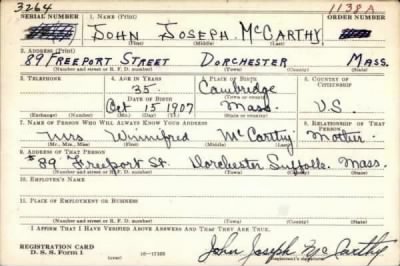 3264 1138A
SERIAL NUMBER 1. NAME (Print) ORDER NUMBER
JOHN JOSEPH McCARTHY
(First) (Middle) (Last)
2. ADDRESS (Print)
89 FREEPORT STREET DORCHESTER MASS.
(Number and street or R. F. D. number) (Town) (County) (State)
3. TELEPHONE 4. AGE IN YEARS 5. PLACE OF BIRTH 6. COUNTRY OF CITIZENSHIP
35 Cambridge
DATE OF BIRTH (Town or county)
Oct 15 1907 Mass. U.S.
(Exchange) (Number) (Mo.) (Day) (Yr.) (State or country)
7. NAME OF PERSON WHO WILL ALWAYS KNOW YOUR ADDRESS 8. RELATIONSHIP OF THAT PERSON
Mrs Winnifred McCarthy Mother
(Mr., Mrs., Miss) (First) (Middle) (Last)
9. ADDRESS OF THAT PERSON
#89 Freeport St. Dorchester Suffolk Mass.
(Number and street or R. F. D. number) (Town) (County) (State)
10. EMPLOYER'S NAME
11. PLACE OF EMPLOYMENT OR BUSINESS
(Number and street or R. F. D. number) (Town) (County) (State)
I AFFIRM THAT I HAVE VERIFIED ABOVE ANSWERS AND THAT THEY ARE TRUE.
REGISTRATION CARD
D. S. S. Form 1 (over) 16-17105 John Joseph McCarthy
(Registrant's signature)